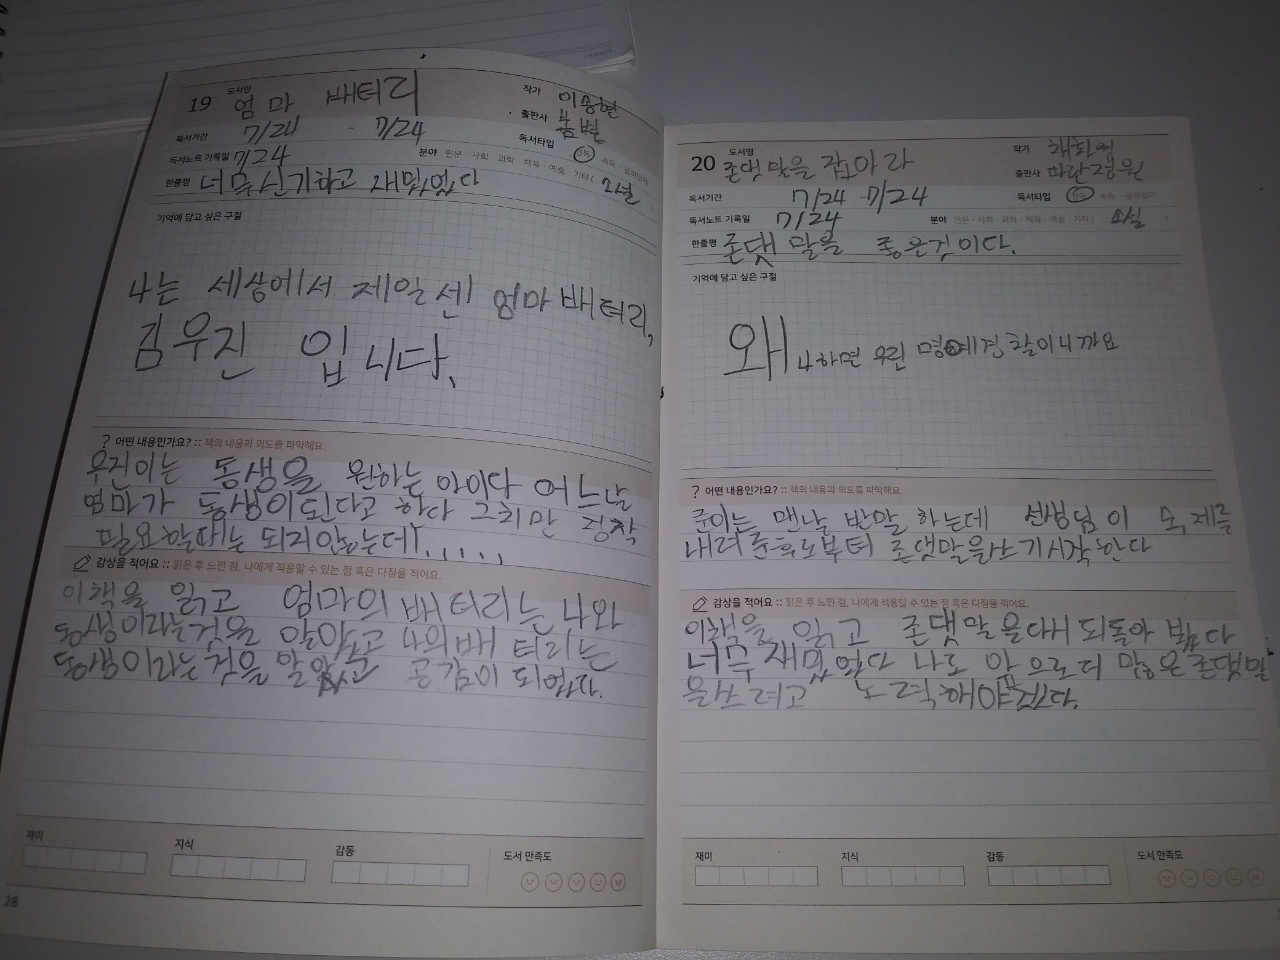 19
도서명
엄마 배터리
작가 이승현
출판사 봄볕
독서기간 7/24 - 7/24
독서타입
독서노트 기록일 7/24
분야 인문 · 사회 · 과학 · 체육 · 예술 · 기타 ( 소설
한줄평 너무 신기하고 재밌었다
기억에 담고 싶은 구절
나는 세상에서 제일 센 엄마 배터리,
김우진 입니다.
? 어떤 내용인가요? :: 책의 내용과 의도를 파악해요.
우진이는 동생을 원하는 아이다 어느날
엄마가 동생이 된다고 하다 그치만 정작
필요할때는 되지않는데.....
감상을 적어요 :: 읽은 후 느낀 점, 나에게 적용할 수 있는 점 혹은 다짐을 적어요.
이책을 읽고 엄마의 배터리는 나와
동생이라는것을 알았고 나의배 터리는
동생이라는것을 알았고 공감이 되었다.
재미
지식
감동
도서 만족도
28
20
도서명
존댓말을 잡아라
작가
출판사 파란정원
독서기간 7/24 - 7/24
독서타입
독서노트 기록일 7/24
분야 인문 · 사회 · 과학 · 체육 · 예술 · 기타 ( 소설 )
한줄평 존댓말을 좋은것이다.
기억에 담고 싶은 구절
왜냐하면 우린 명예경찰이니까요
? 어떤 내용인가요? :: 책의 내용과 의도를 파악해요.
준이는 맨날 반말 하는데 선생님이 숙제를
내려준후로부터 존댓말을쓰기시작한다
감상을 적어요 :: 읽은 후 느낀 점, 나에게 적용할 수 있는 점 혹은 다짐을 적어요.
이책을 읽고 존댓말을다시 되돌아 봤다
너무 재밌었다 나도 앞으로 더 많은존댓말
을쓰려고 노력해야겠다.
재미
지식
감동
도서 만족도